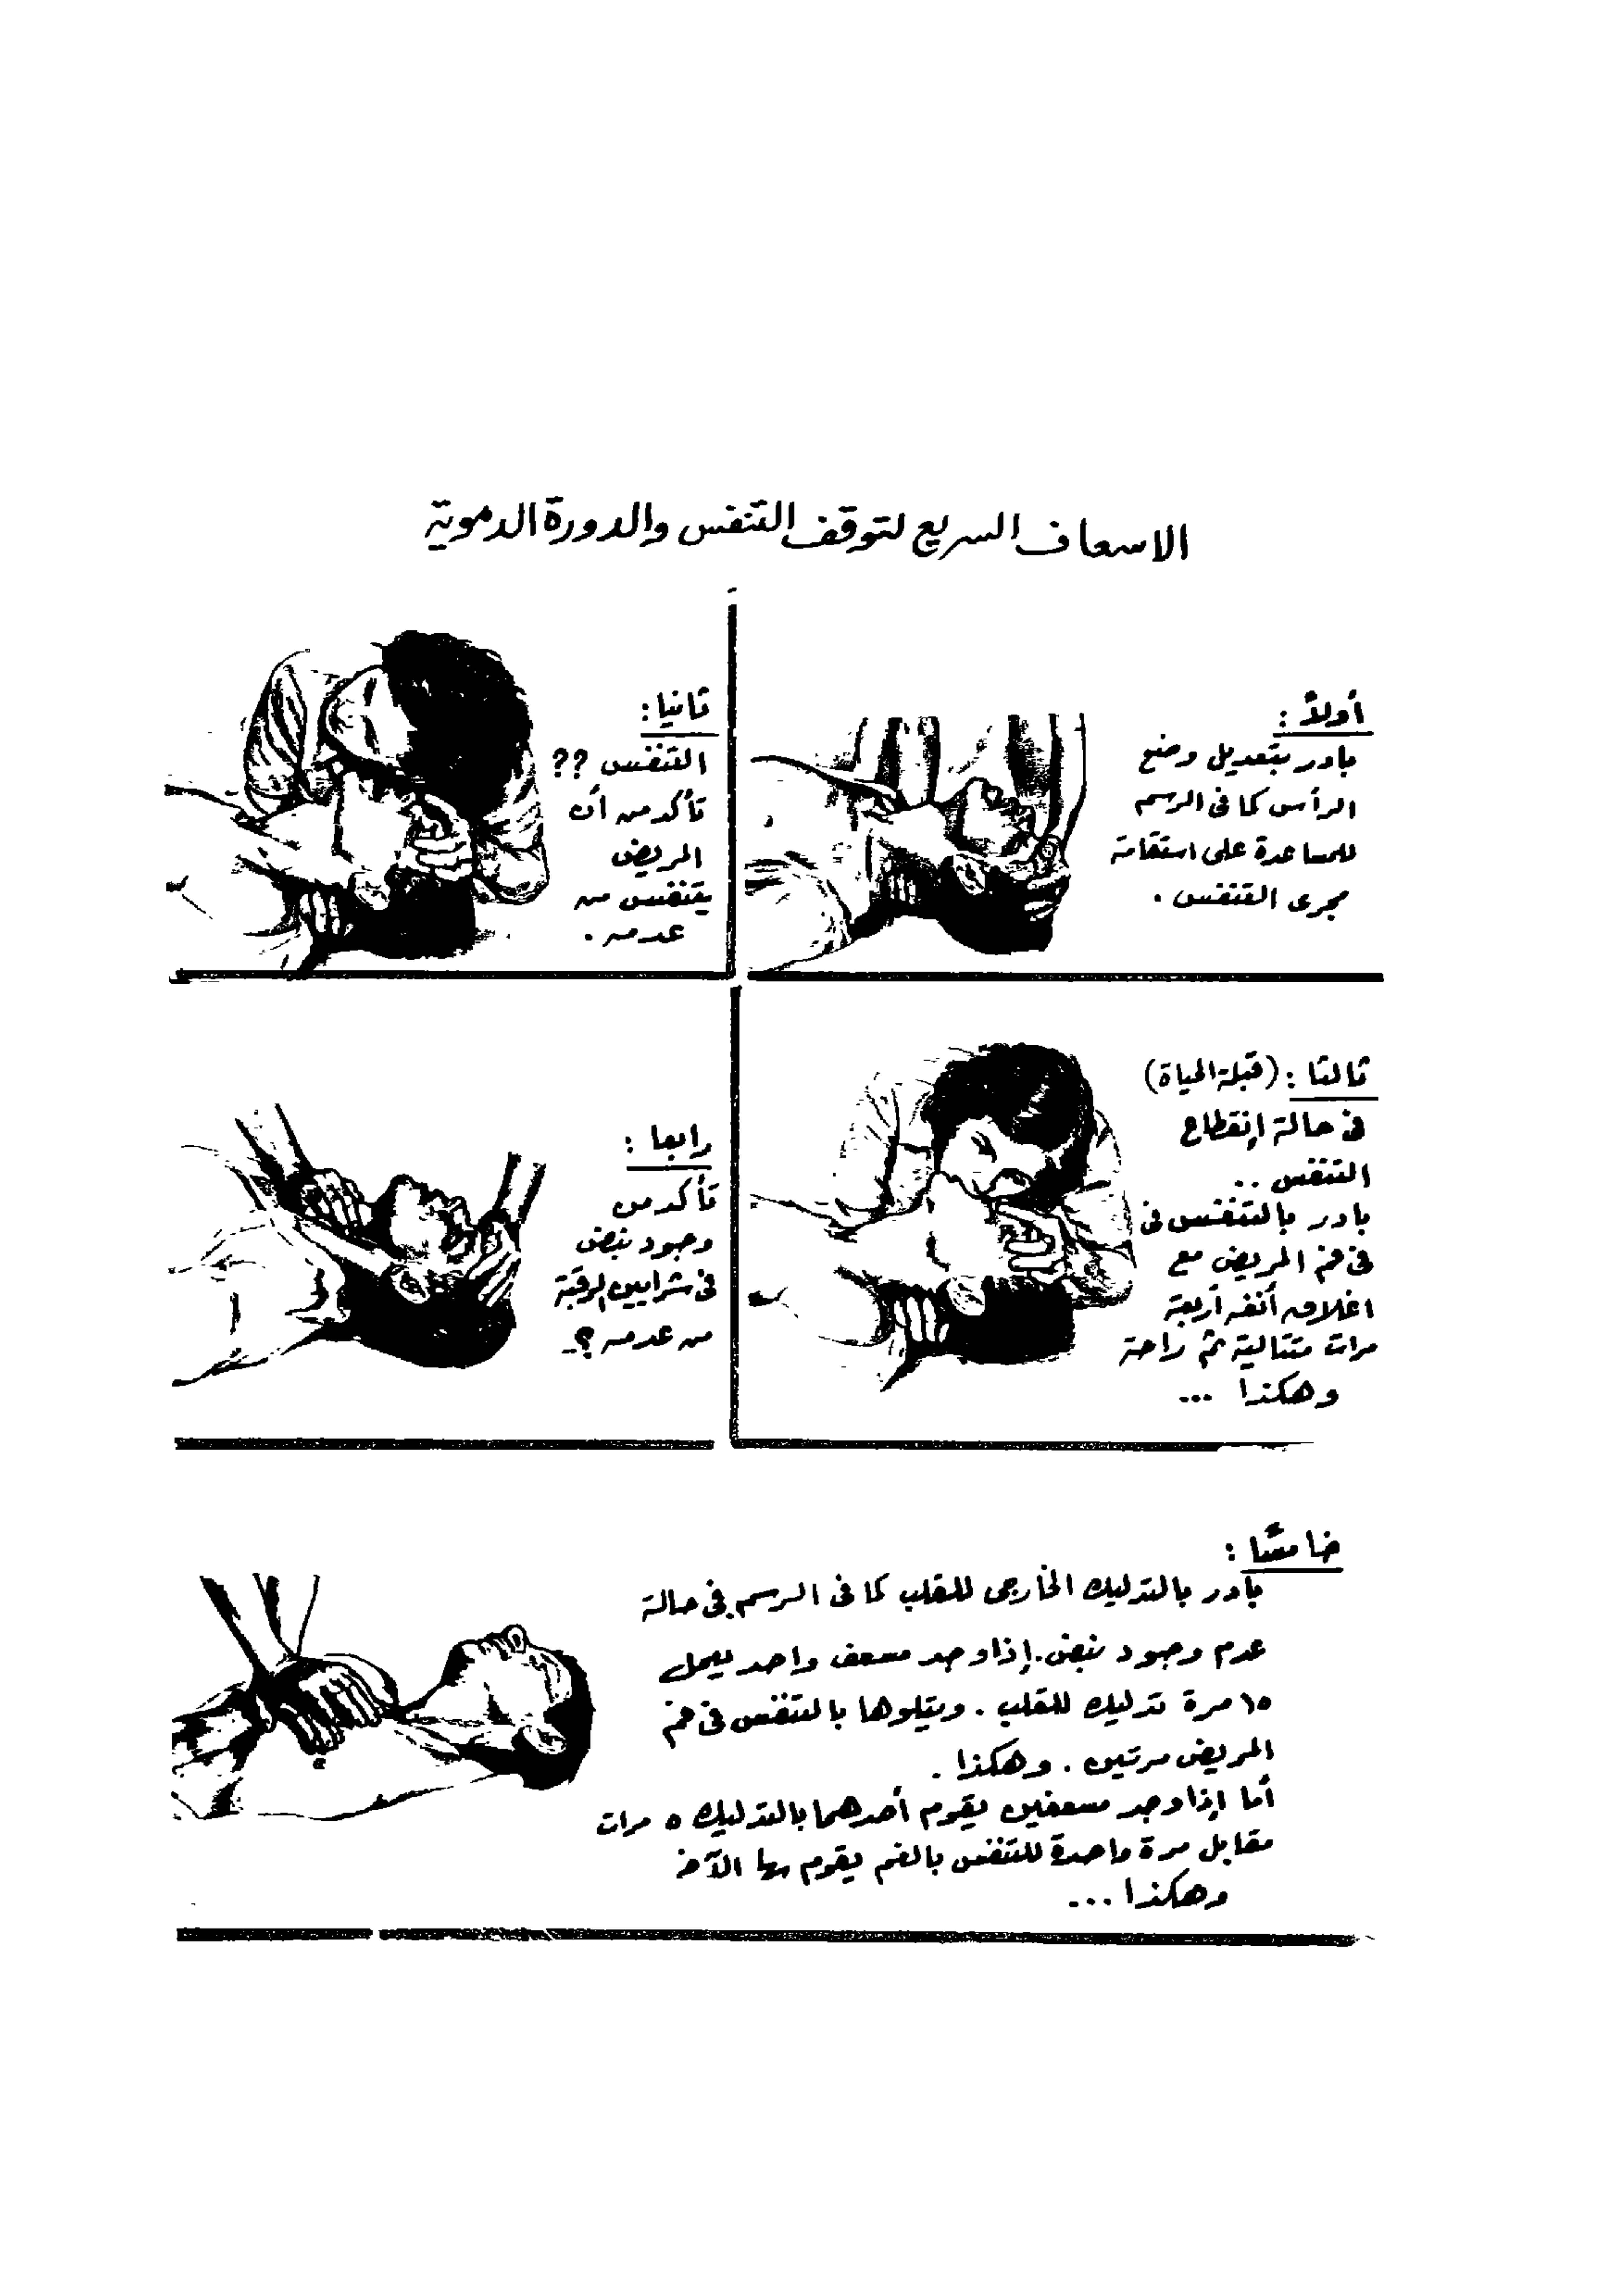 الاسعاف السريع لتوقف التنفس والدورة الدموية
أولاً :
بادر بتعديل وضع
الرأس كما فى الرسم
للمساعدة على استقامة
مجرى التنفس .
ثانيا :
التنفس ??
تأكد من أن
المريض
يتنفس من
عدمه .
ثالثا : (قبلة الحياة)
فى حالة إنقطاع
التنفس ..
بادر بالتنفس فى
فى فم المريض مع
اغلاق أنفه أربعة
مرات متتالية ثم راحة
وهكذا ...
رابعا :
تأكد من
وجود نبض
فى شرايين الرقبة
من عدمه ؟
خامسًا :
بادر بالتدليك الخارجى للقلب كما فى الرسم فى حالة
عدم وجود نبض . إذا وجد مسعف واحد يعمل
١٥ مرة تدليك للقلب . ويتلوها بالتنفس فى فم
المريض مرتين . وهكذا .
أما إذا وجد مسعفين يقوم أحدهما بالتدليك ٥ مرات
مقابل مرة واحدة للتنفس بالفم يقوم بها الآخر
وهكذا ...